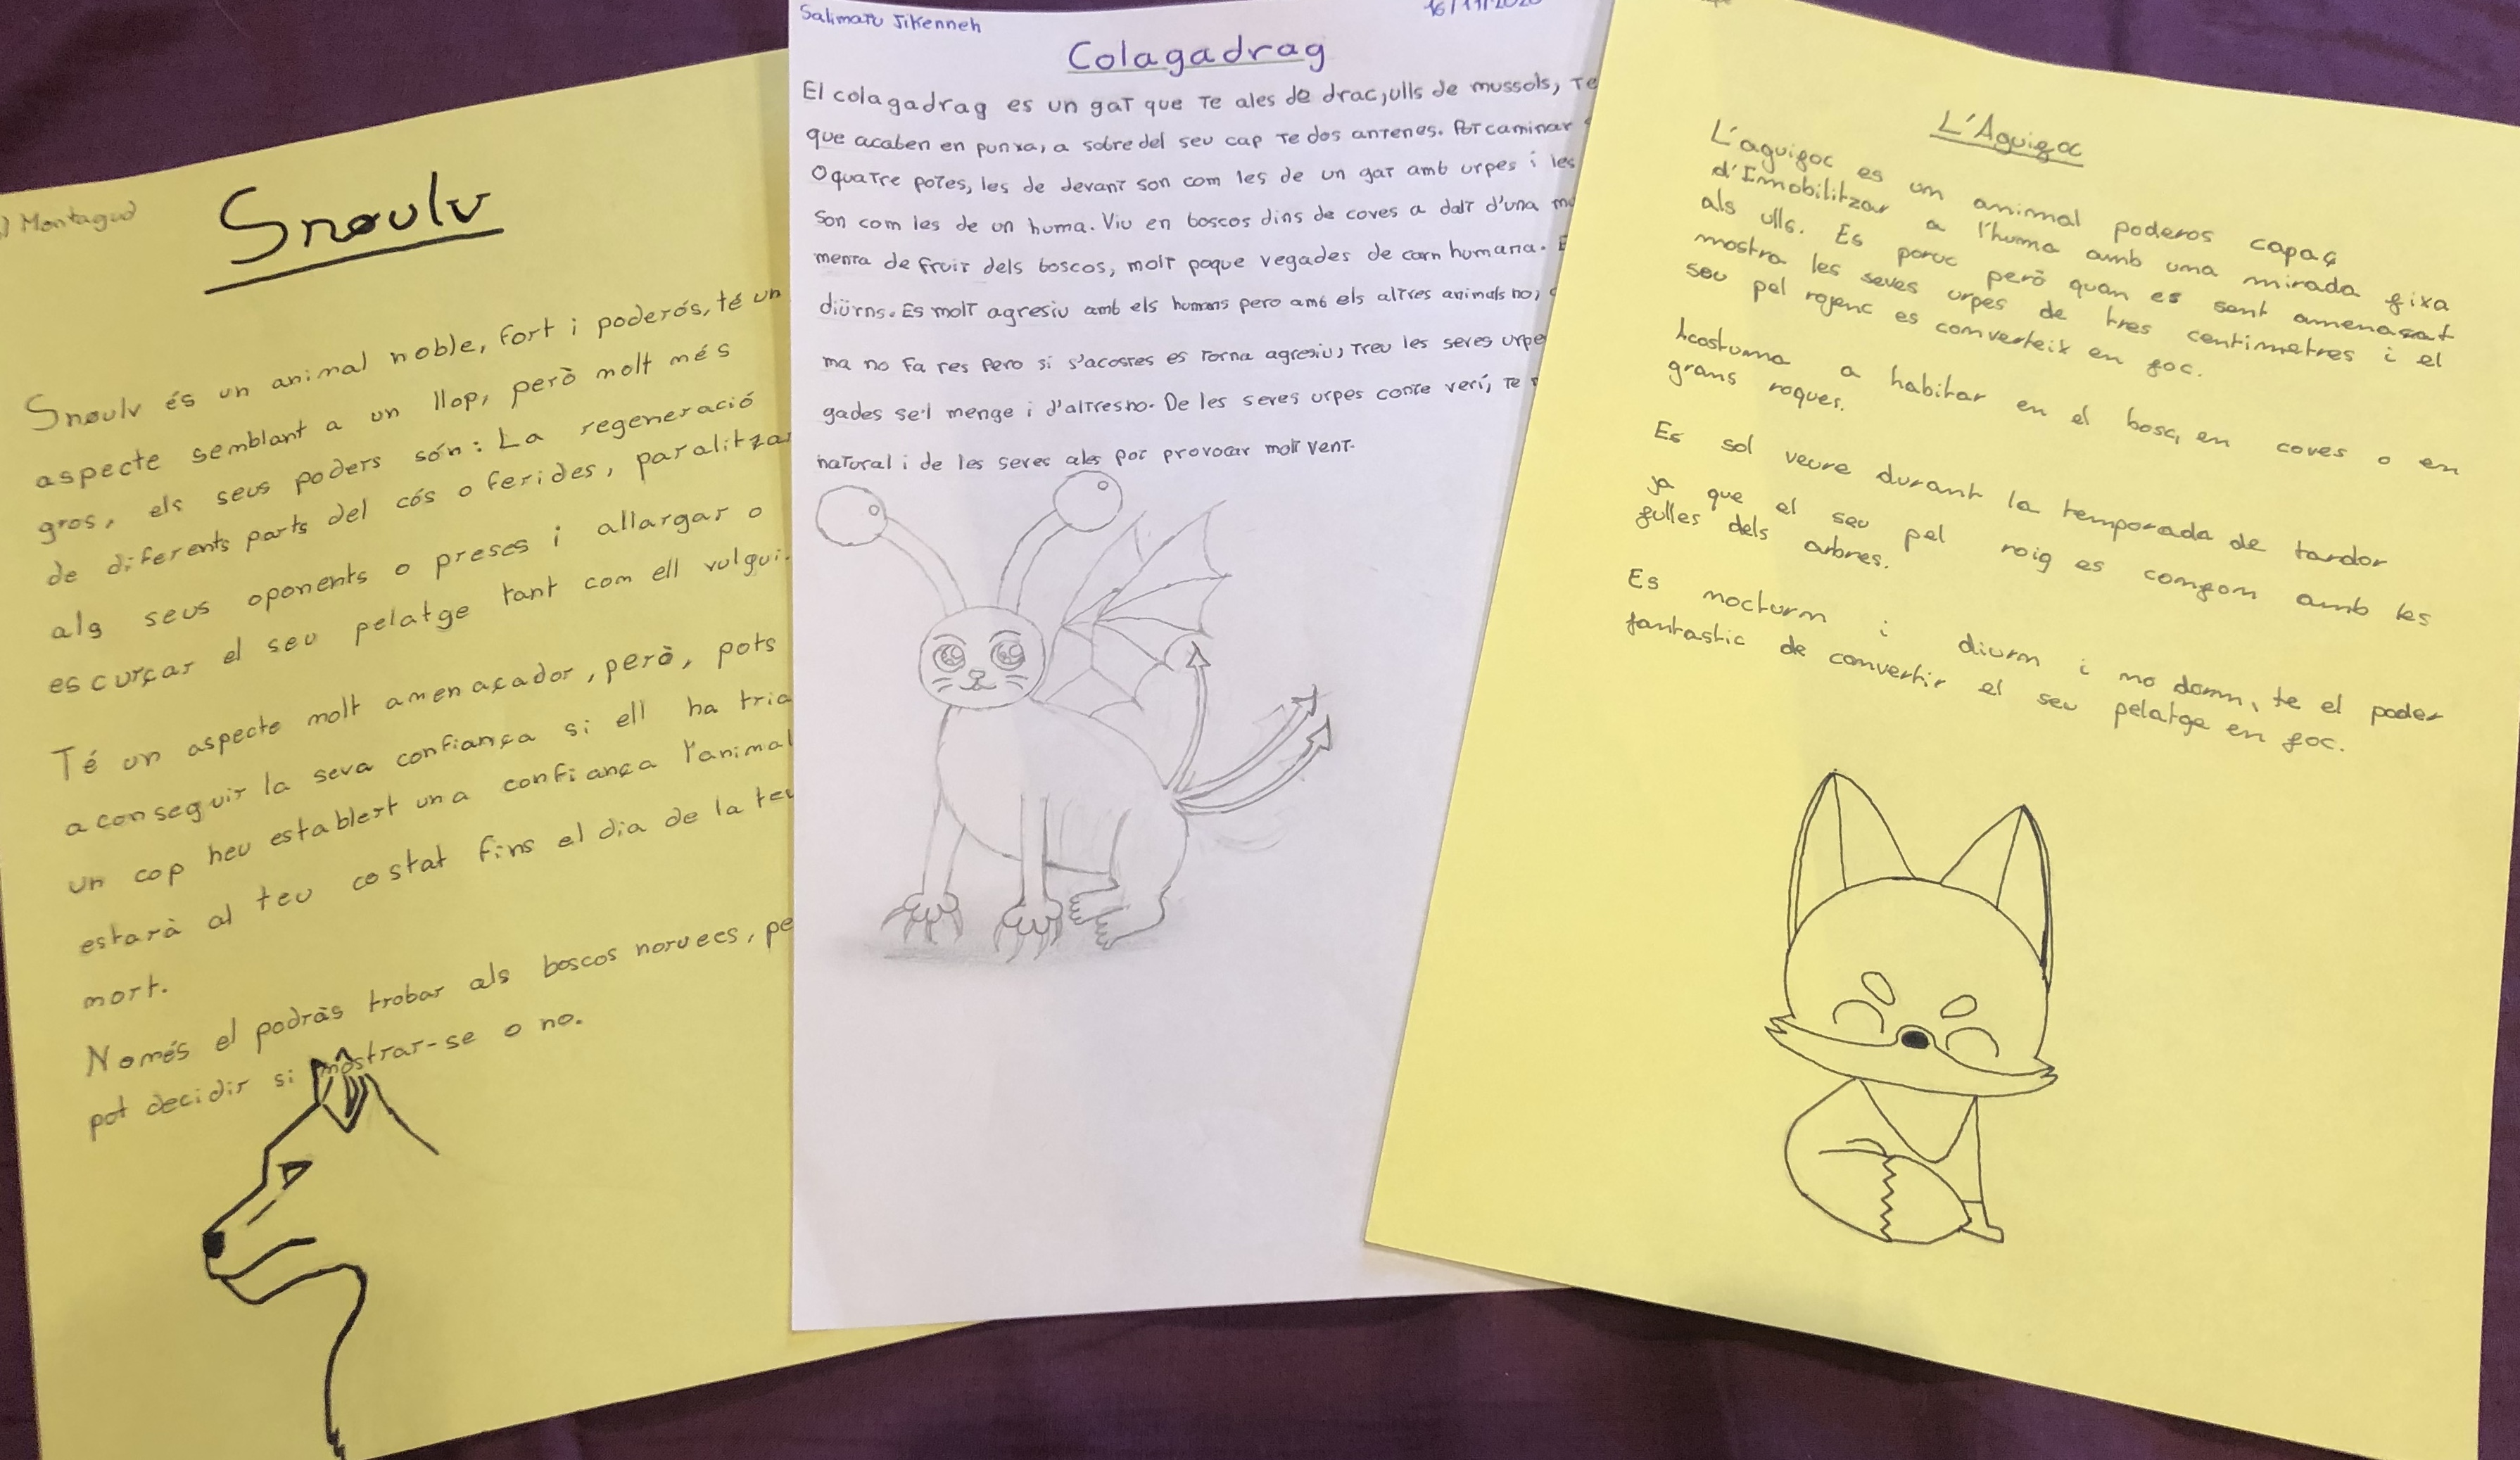 Montagud
Snøulv
Snøulv és un animal noble, fort i poderós, té un
aspecte semblant a un llop, però molt més
gros, els seus poders són: La regeneració
de diferents parts del cós o ferides, paralitzar
als seus oponents o preses i allargar o
escurçar el seu pelatge tant com ell vulgui.
Té un aspecte molt amenaçador, però, pots
aconseguir la seva confiança si ell ha tria
un cop heu establert una confiança l'animal
estarà al teu costat fins el dia de la teu
mort.
Només el podràs trobar als boscos noruecs, pe
pot decidir si mostrar-se o no.
Salimatu Jikenneh
16/11/2020
Colagadrag
El colagadrag es un gat que te ales de drac, ulls de mussols, te
que acaben en punxa, a sobre del seu cap te dos antenes. Pot caminar
O quatre potes, les de devant son com les de un gat amb urpes i les
Son com les de un huma. Viu en boscos dins de coves a dalt d'una m
menta de fruit dels boscos, molt poque vegades de carn humana. E
diürns. Es molt agresiu amb els humans pero amb els altres animals no,
ma no fa res pero si s'acostes es torna agresiu, treu les seves urpe
gades se'l menge i d'altres no. De les seves urpes conte verí, te
natural i de les seves ales pot provocar molt vent.
L'Aguigoc
L'aguigoc es un animal poderos capaç
d'Immobilitzar a l'huma amb una mirada fixa
als ulls. Es poruc però quan es sent amenasat
mostra les seves urpes de tres centimetres i el
seu pel rogenc es converteix en foc.
Acostuma a habitar en el bosc, en coves o en
grans roques.
Es sol veure durant la temporada de tardor
ja que el seu pel roig es confon amb les
fulles dels arbres.
Es nocturn i diurn i no dorm, te el poder
fantastic de convertir el seu pelatge en foc.